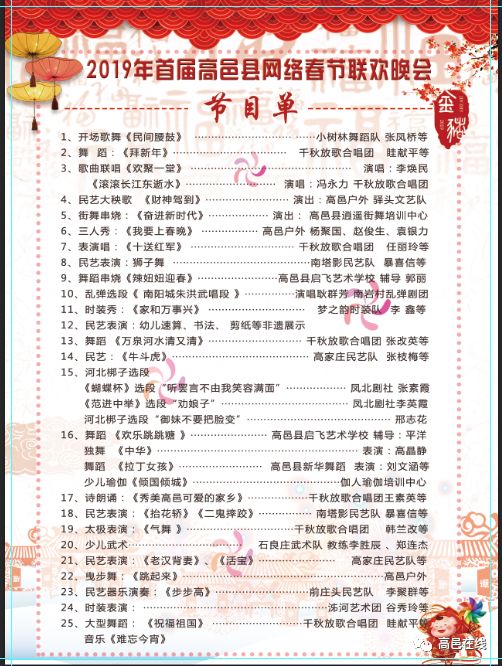 2019年首届高邑县网络春节联欢晚会
节目单
金猪
1、开场歌舞《民间腰鼓》 ……小树林舞蹈队 张凤桥等
2、舞 蹈：《拜新年》 …… 千秋放歌合唱团 眭献平等
3、歌曲联唱《欢聚一堂》 …… 演唱：李焕民
《滚滚长江东逝水》 …… 演唱：冯永力 千秋放歌合唱团
4、民艺大秧歌 《财神驾到》 ……演出：高邑户外 驿头文艺队
5、街舞串烧：《奋进新时代》 ……演出： 高邑县逍遥街舞培训中心
6、三人秀：《我要上春晚》 ……高邑户外 杨聚国、赵俊生、袁银力
7、表演唱：《十送红军》 ……千秋放歌合唱团 任丽玲等
8、民艺表演：狮子舞 ……南塔影民艺队 暴喜信等
9、舞蹈串烧《辣妞妞迎春》 ……高邑县启飞艺术学校 辅导 郭丽
10、乱弹选段《 南阳城朱洪武唱段 》 ……演唱耿群芳 南岩村乱弹剧团
11、时装秀：《家和万事兴》 …… 梦之韵时装队 李 鑫等
12、民艺表演：幼儿速算、书法、 剪纸等非遗展示
13、舞蹈 《万泉河水清又清》 ……千秋放歌合唱团 张改英等
14、民艺：《牛斗虎》 ……高家庄民艺队 张枝梅等
15、河北梆子选段
《蝴蝶杯》选段“听罢言不由我笑容满面” ……凤北剧社 张素霞
《范进中举》选段“劝娘子” ……凤北剧社李英霞
河北梆子选段“御妹不要把脸变” ……邢志花
16、舞蹈 《欢乐跳跳糖 》 ……高邑县启飞艺术学校 辅导：平洋
独舞 《中华》 ……表演：高晶静
舞蹈 《拉丁女孩》 …… 高邑县新华舞蹈 表演：刘文涵等
少儿瑜伽《倾国倾城》 ……伽人瑜伽培训中心
17、诗朗诵：《秀美高邑可爱的家乡》 ……千秋放歌合唱团王素英等
18、民艺表演：《抬花轿》《二鬼摔跤》 ……南塔影民艺队 暴喜信等
19、太极表演：《气舞 》 ……千秋放歌合唱团 韩兰改等
20、少儿武术 …… 石良庄武术队 教练李胜辰 、郑连杰
21、民艺表演：《老汉背妻》、《活宝》 ……高家庄民艺队等
22、曳步舞：《跳起来》 ……高邑户外
23、民艺器乐演奏：《步步高》 ……前庄头民艺队 李聚群等
24、时装表演： ……泲河艺术团 谷秀玲等
25、大型舞蹈： 《祝福祖国》 ……千秋放歌合唱团 眭献平等
音乐《难忘今宵》
高邑在线